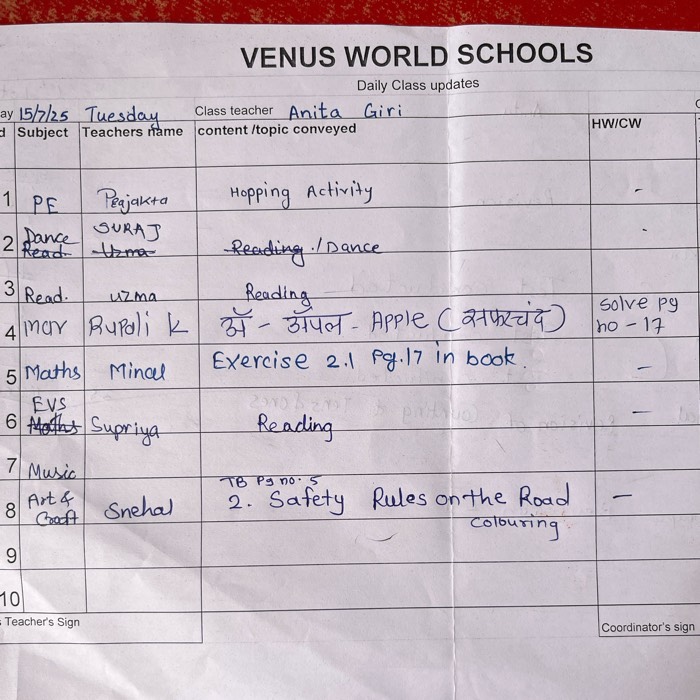 VENUS WORLD SCHOOLS
Daily Class updates
ay 15/7/25 Tuesday Class teacher Anita Giri
d Subject Teachers name content /topic conveyed HW/CW
1 PE Prajakta Hopping Activity -
2 Dance SURAJ Reading / Dance -
Read Uzma
3 Read. uzma Reading
4 mar Rupali k ॲ - ॲपल - Apple (सफरचंद) solve pg
no - 17
5 Maths Minal Exercise 2.1 Pg.17 in book. -
6 EVS Supriya Reading -
Maths
7 Music
TB Pg no. 5
8 Art & Snehal 2. Safety Rules on the Road -
Craft colouring
9
10
Teacher's Sign Coordinator's sign